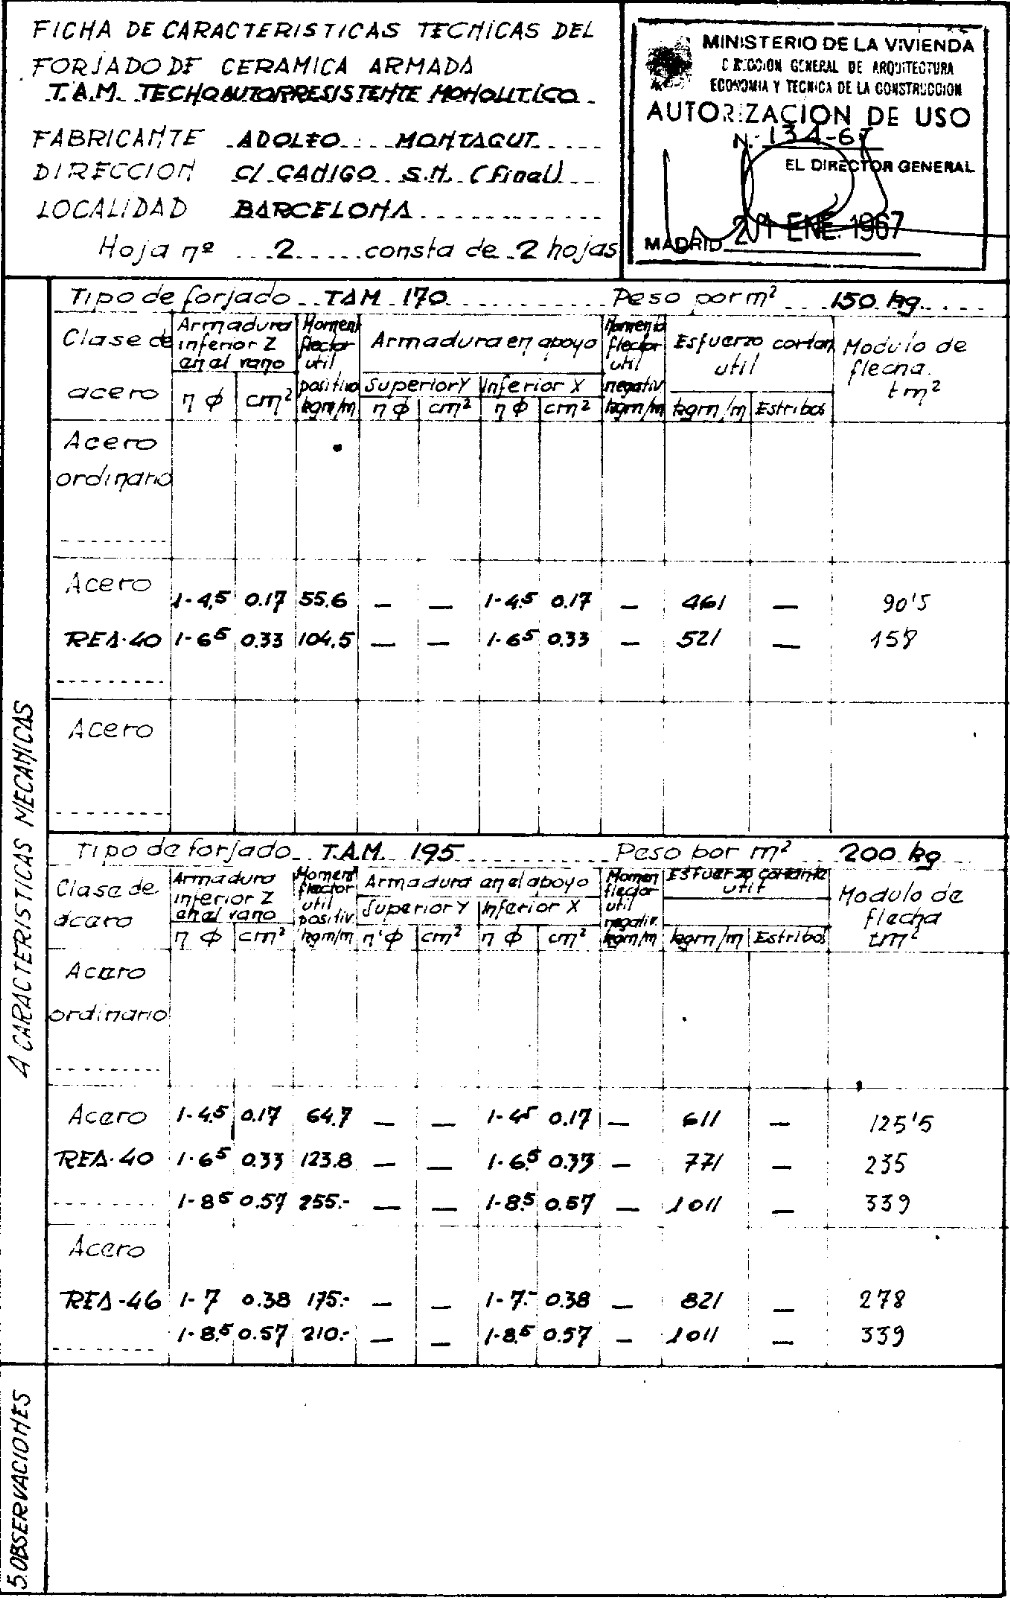 FICHA DE CARACTERISTICAS TECNICAS DEL
FORJADO DE CERAMICA ARMADA
T.A.M. TECHO AUTORRESISTENTE MONOLITICO
FABRICANTE ADOLFO MONTAGUT
DIRECCION C/ CANIGO S.N. (final)
LOCALIDAD BARCELONA
Hoja nº 2 consta de 2 hojas
MINISTERIO DE LA VIVIENDA
DIRECCION GENERAL DE ARQUITECTURA
ECONOMIA Y TECNICA DE LA CONSTRUCCION
AUTORIZACION DE USO
N.º 134-67
EL DIRECTOR GENERAL
MADRID 21 ENE. 1967
A CARACTERISTICAS MECANICAS
Tipo de forjado TAM 170 Peso por m² 150 kg.
Clase de acero
Armadura inferior Z en al vano
η φ cm²
Moment flector util positivo kgm/m
Armadura en apoyo
Superior Y Inferior X
η φ cm² η φ cm²
Momento flector util negativ kgm/m
Esfuerzo cortan util
kgm/m Estribos
Modulo de flecha. tm²
Acero
ordinario
Acero
1-4,5 0.17 55.6 — — 1-4.5 0.17 — 461 — 90'5
REA-40 1-6⁵ 0.33 104.5 — — 1-6.5 0.33 — 521 — 158
Acero
Tipo de forjado T.A.M. 195 Peso por m² 200 kg
Clase de acero
Armadura inferior Z en al vano
η φ cm²
Moment flector util positiv kgm/m
Armadura en el apoyo
Superior Y Inferior X
η φ cm² η φ cm²
Momen flector util negativ kgm/m
Esfuerzo cortante util
kgm/m Estribos
Modulo de flecha tm²
Acero
ordinario
Acero 1-4.5 0.17 64.7 — — 1-4⁵ 0.17 — 611 — 125'5
REA-40 1-6⁵ 0.33 123.8 — — 1-6.5 0.33 — 771 — 235
1-8⁵ 0.57 255.- — — 1-8.5 0.57 — 1011 — 339
Acero
REA-46 1-7 0.38 175.- — — 1-7.- 0.38 — 821 — 278
1-8.5 0.57 210.- — — 1-8.5 0.57 — 1011 — 339
5. OBSERVACIONES